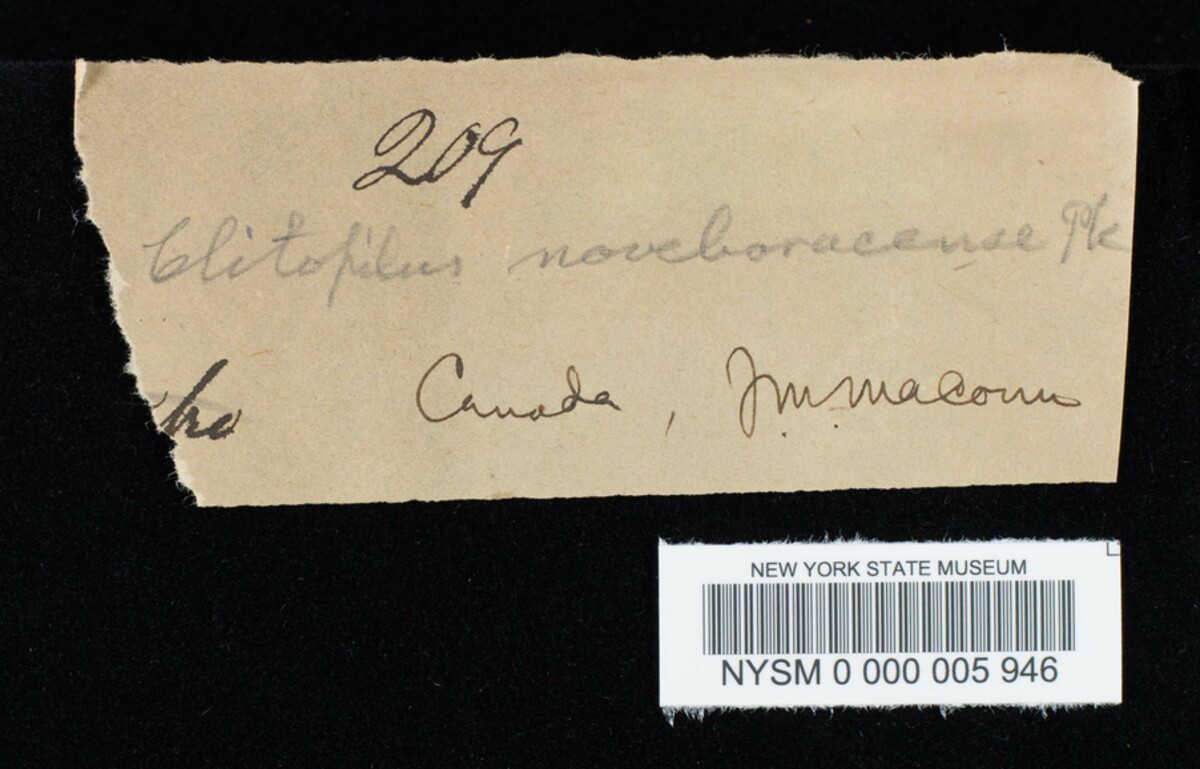 209
Clitopilus noveboracense Pk
Canada, J.M. Macoun
NEW YORK STATE MUSEUM
NYSM 0 000 005 946